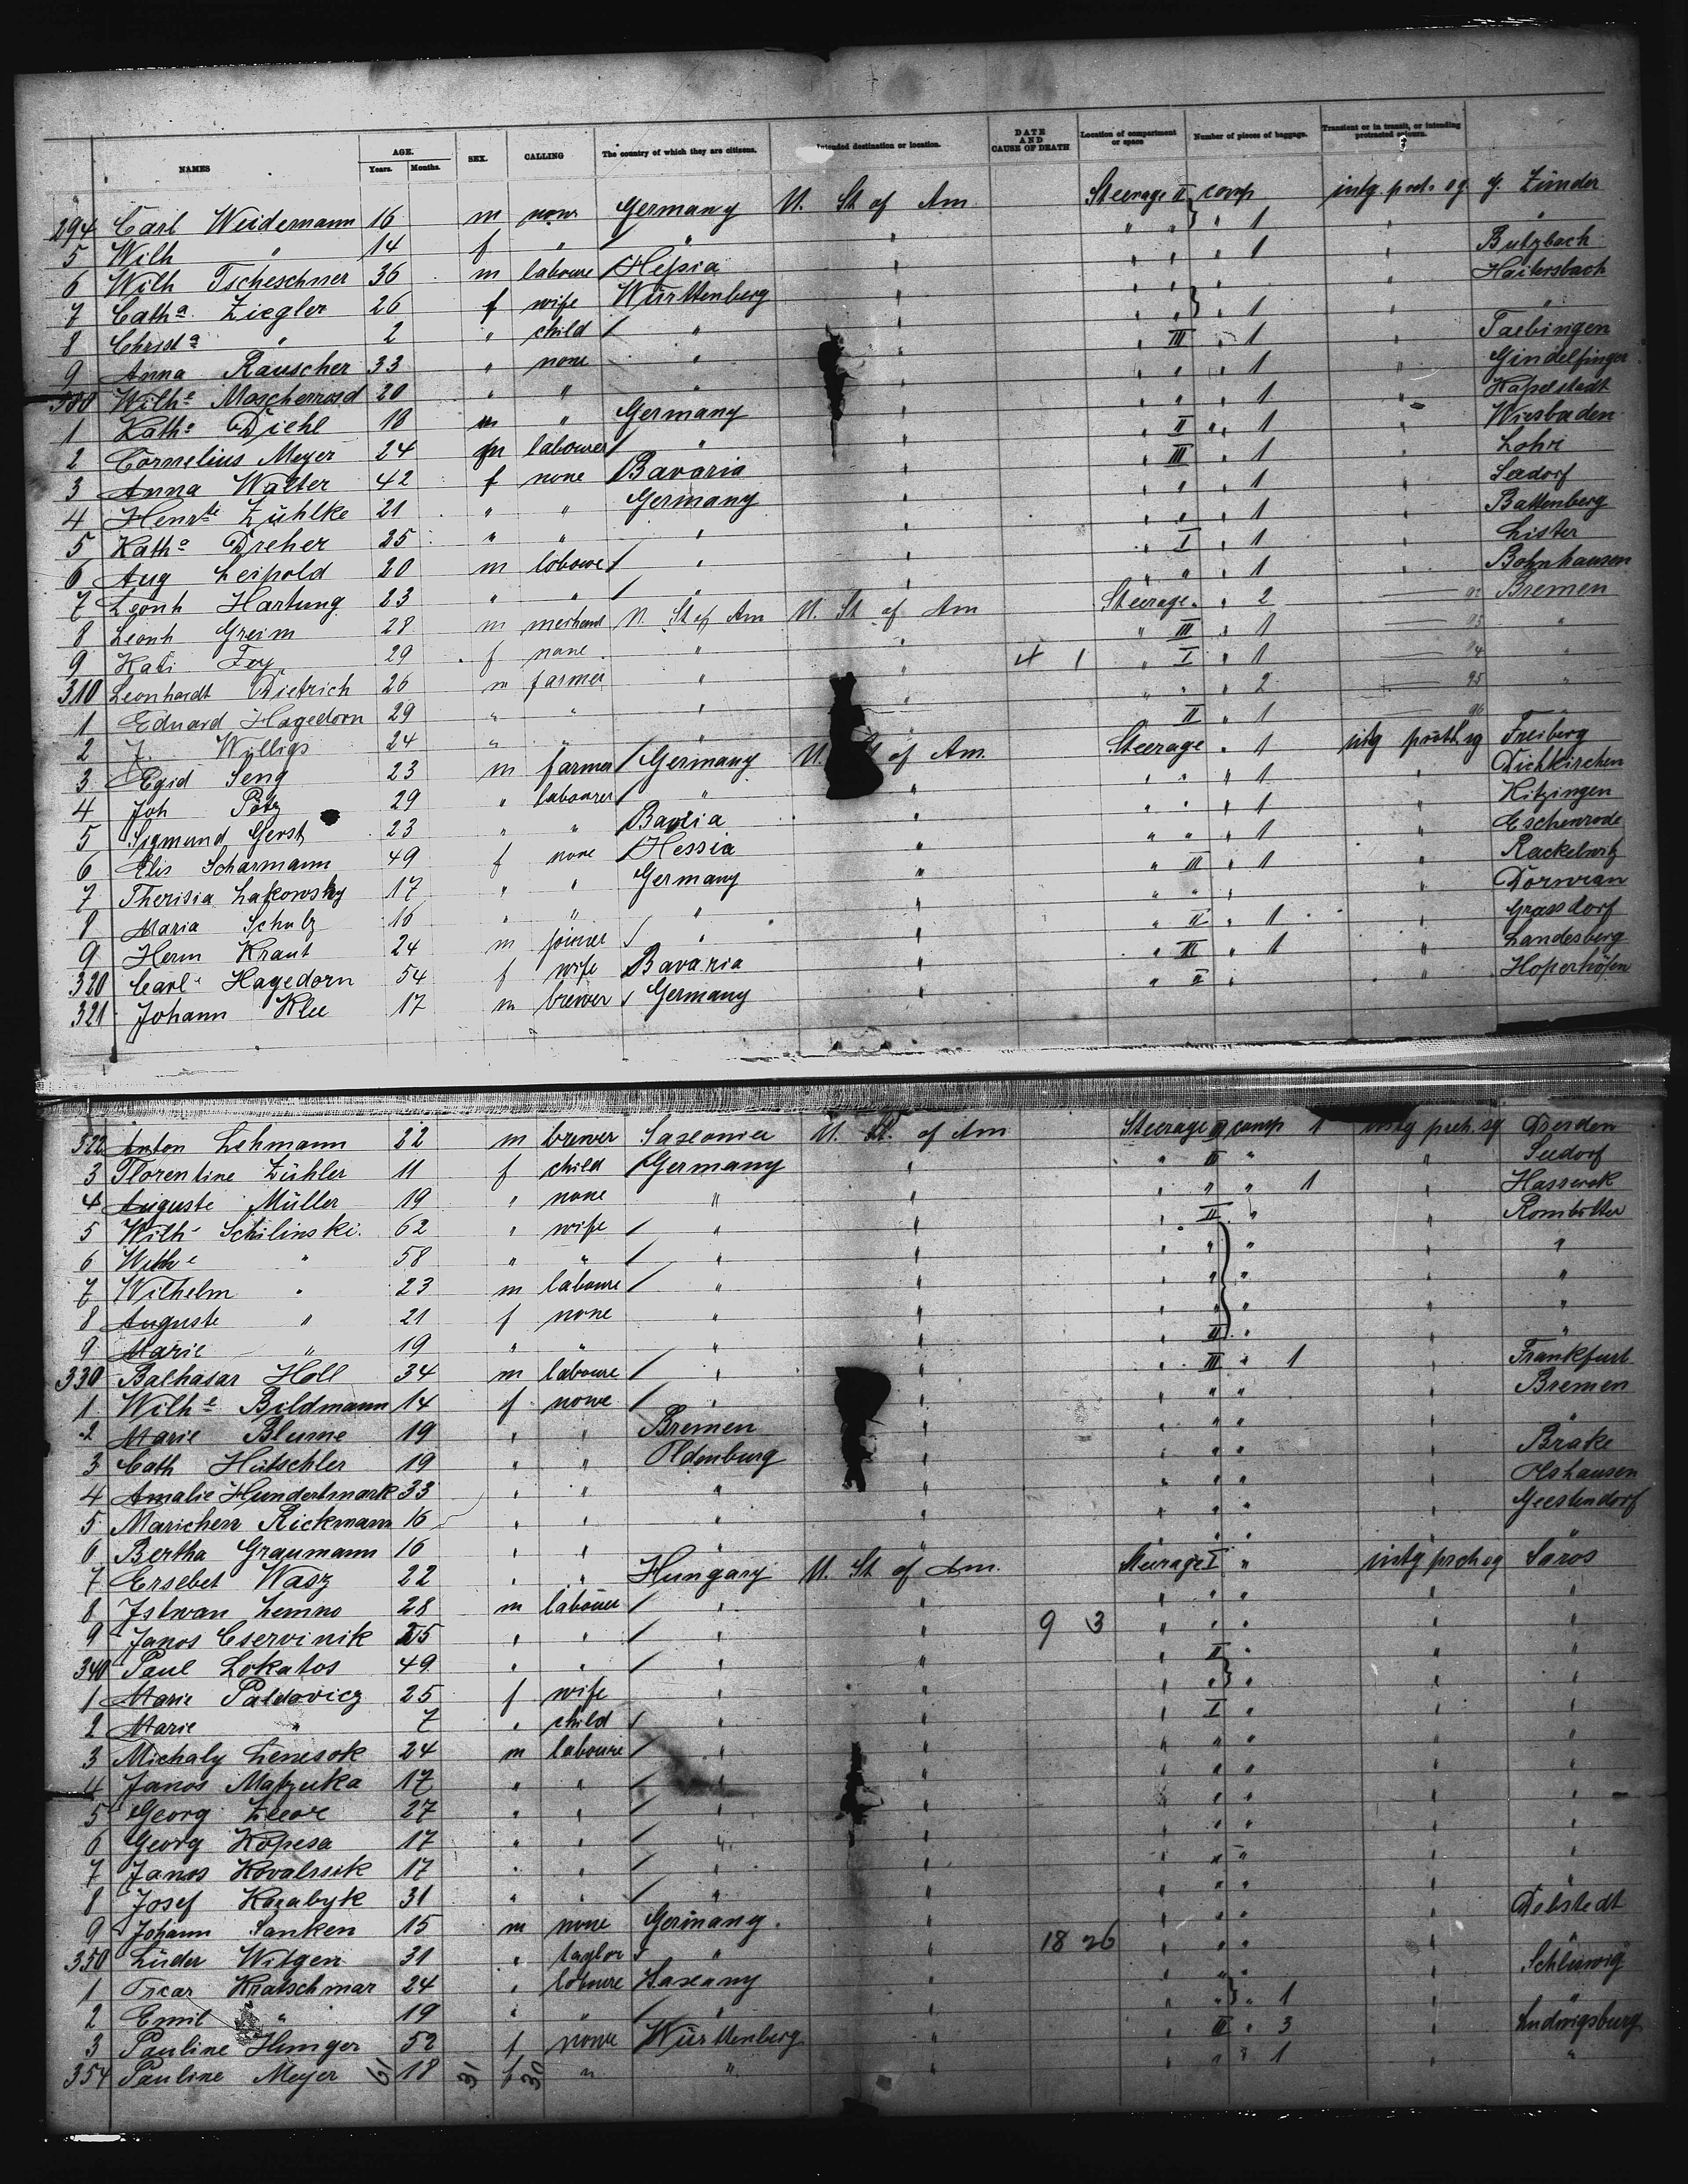 NAMES AGE. Years. Months. SEX. CALLING The country of which they are citizens. Intended destination or location. DATE AND CAUSE OF DEATH Location of compartment or space Number of pieces of baggage. Transient or in transit, or intending protracted sojourn.
294 Carl Weidemann 16 m none Germany U. St of Am Steerage II comp 1 intg prot. sg g. Zünder
5 Wilh " 14 f " " " " " " 1 " "
6 Wilh Tscheschner 36 m laboure Hessia " " " " 1 " Butzbach
7 Cath.a Ziegler 26 f wife Württenberg " " " " " Haitersbach
8 Christ.a " 2 " child " " " " " 1 " "
9 Anna Rauscher 33 " none " " " III " 1 " Taebingen
300 Wilh.e Moscherosd 20 " " " " " " " 1 " Gindelfinger
1 Kath.a Diehl 18 m " Germany " " " " 1 " Kapelstadt
2 Cornelius Meyer 24 m labourer " " " II " 1 " Wiesbaden
3 Anna Walter 42 f none Bavaria " " III " 1 " Lohr
4 Henr.tte Zühlke 21 " " Germany " " " " 1 " Seedorf
5 Kath.a Dreher 25 " " " " " " " 1 " Battenberg
6 Aug Leipold 20 m laboure " " " I " 1 " Lister
7 Leonh Hartung 23 " " " " " " " 1 " Bohnhausen
8 Leonh Greim 28 m merchant U. St of Am U. St of Am Steerage " " 2 Bremen
9 Kati Fey 29 f none " " " III " 1 95 "
310 Leonhardt Dietrich 26 m farmer " " 4 1 " I " 1 94 "
1 Eduard Hagedorn 29 " " " " " " " 2 95 "
2 J. Willigs 24 " " " " II " 1 96 "
3 Egid Seng 23 m farmer Germany U. St of Am. Steerage " 1 intg proth sg Freiberg
4 Joh Pötz 29 " labourer " " " " " 1 " Dichkirchen
5 Sigmund Gerst 23 " " Bavria " " " " 1 " Kitzingen
6 Elis Scharmann 49 f none Hessia " " " " 1 " Eschenrode
7 Therisia Lakowsky 17 " " Germany " " III " 1 " Rackelwitz
8 Maria Schulz 16 " " " " " " " " Dorwran
9 Herm Kraut 24 m joiner " " " II " 1 " Grassdorf
320 Carl Hagedorn 54 f wife Bavaria " " III " 1 " Landesberg
321 Johann Klee 17 m brewer Germany " " II " " Hoperhöfen
322 Anton Lehmann 22 m brewer Saxonia U. St. of Am Steerage II comp 1 intg proh. sg Dresden
3 Florentine Zühler 11 f child Germany " " III " " Seedorf
4 Auguste Müller 19 " none " " " " " 1 " Hasserok
5 Wilh Schilinski. 62 " wife " " " II " "
6 Wilh.e " 58 " " " " " " " " "
7 Wilhelm " 23 m laboure " " " " " " "
8 Auguste " 21 f none " " " " " " "
9 Marie " 19 " " " " " III " " "
330 Balhasar Holl 34 m laboure " " " III " 1 " Frankfurt
1 Wilh.e Bildmann 14 f none " " " " " " Bremen
2 Marie Blume 19 " " Bremen " " " " " "
3 Cath Hütschler 19 " " Oldenburg " " " " " Brake
4 Amalie Hundertmark 33 " " " " " " " " Olshausen
5 Marichen Rickmann 16 " " " " " " " " Geestendorf
6 Bertha Graumann 16 " " " " " " " " "
7 Ersebet Wasz 22 " " Hungary U. St of Am. Steerage I " intg proh sg Saros
8 Istwan Lemno 28 m labourer " " " " " " "
9 Janos Cservinik 25 " " " " 9 3 " " " " "
340 Paul Lokatos 49 " " " " " II " " "
1 Marie Paldovicz 25 f wife " " " " " " "
2 Marie " 7 " child " " " I " " "
3 Michaly Lenesok 24 m laboure " " " " " " "
4 Janos Matzuka 17 " " " " " " " " "
5 Georg 27 " " " " " " " " "
6 Georg Kopesa 17 " " " " " " " " "
7 Janos Kovalssik 17 " " " " " " " " "
8 Josef Kazabyk 31 " " " " " " " " "
9 Johann Sanken 15 m none Germany. " " " " " Debstedt
350 Lüder Witgen 31 " taylor " " 18 26 " " " " "
1 Oscar Kratschmar 24 " laboure Saxany " " " " " Schleswig
2 Emil " 19 " " " " " " " 1 " "
3 Pauline Hunger 52 f none Württenberg " " III " 3 " Ludwigsburg
354 Pauline Meyer 18 f " " " " " " 1 " "
61 31 30